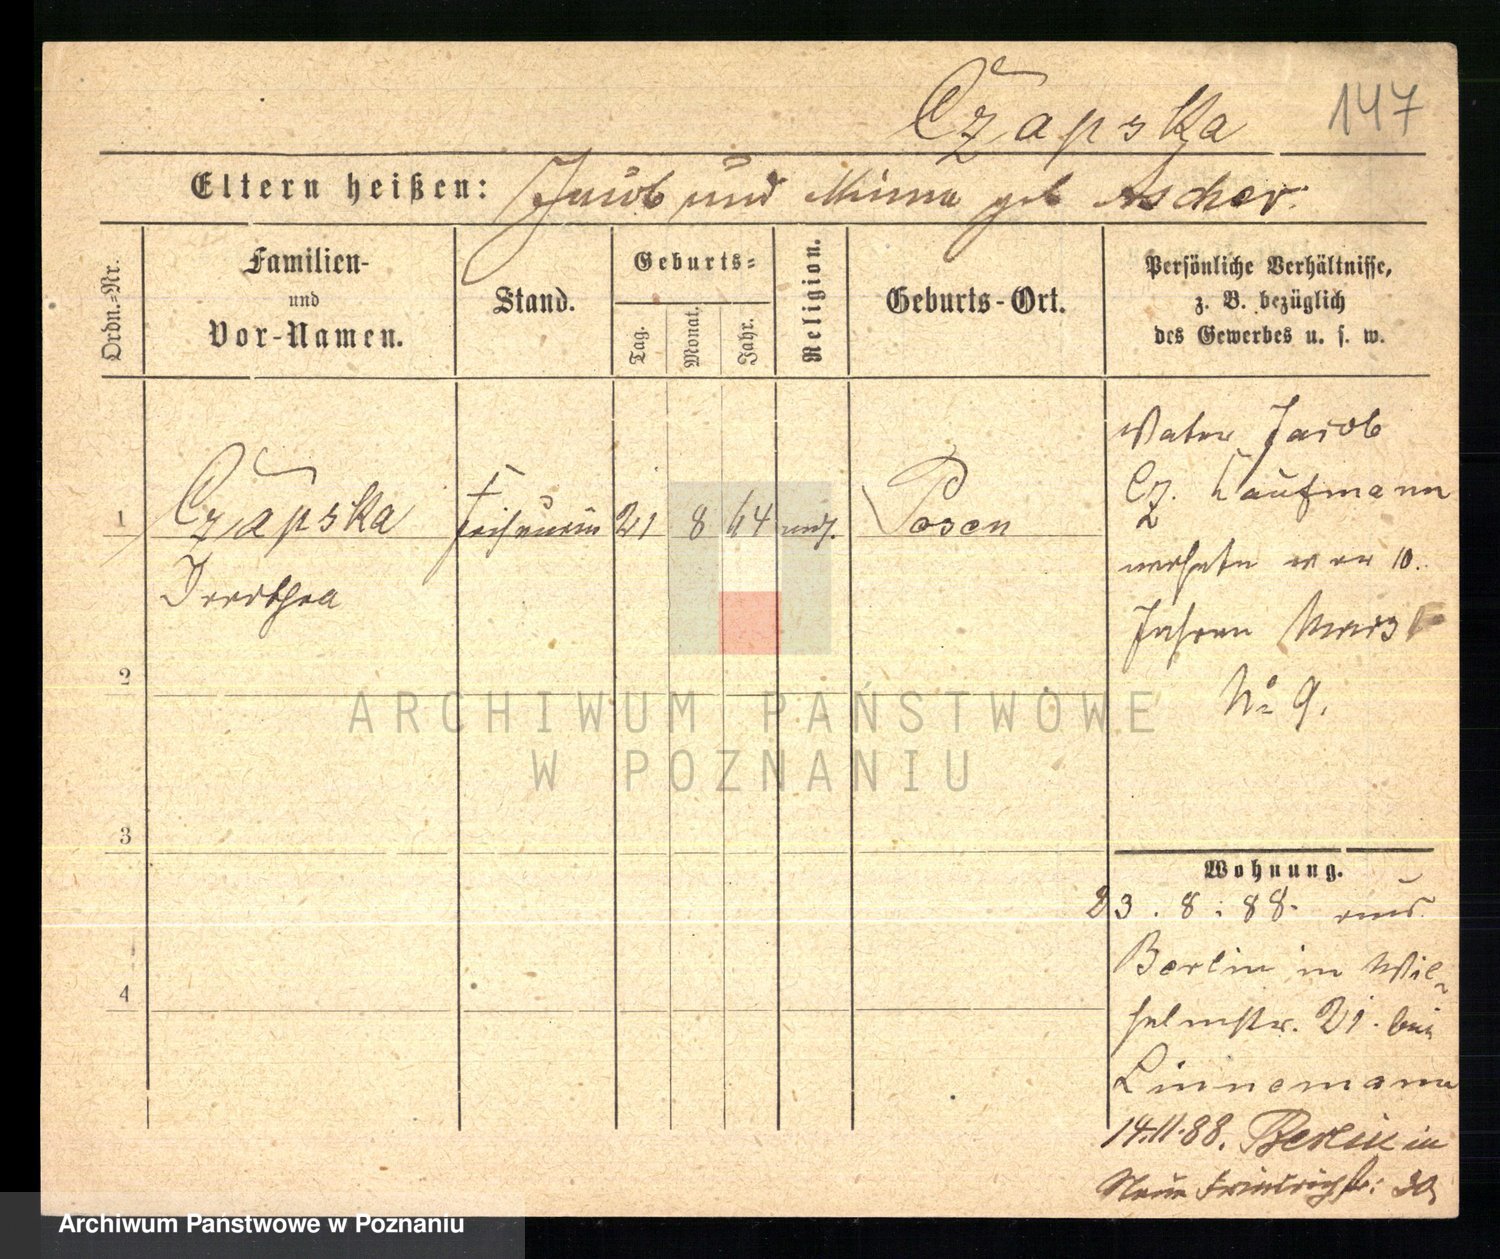 Czapska
147
Eltern heißen: Jacob und Minna geb Ascher.
Ordn.-Nr.
Familien-
und
Vor-Namen.
Stand.
Geburts-
Tag.
Monat.
Jahr.
Religion.
Geburts-Ort.
Persönliche Verhältnisse,
z. B. bezüglich
des Gewerbes u. s. w.
1
Czapska
21
8
64
Posen
Dorothea
Vater Jacob
Cz. Kaufmann
vor 10.
Jahren Markt
No 9.
2
3
4
Wohnung.
23.8.88. aus
Berlin in Wil-
helmstr. 21. bei
Linnemann
14.11.88. Berlin
Neue Friedrichstr:
ARCHIWUM PAŃSTWOWE
W POZNANIU
Archiwum Państwowe w Poznaniu